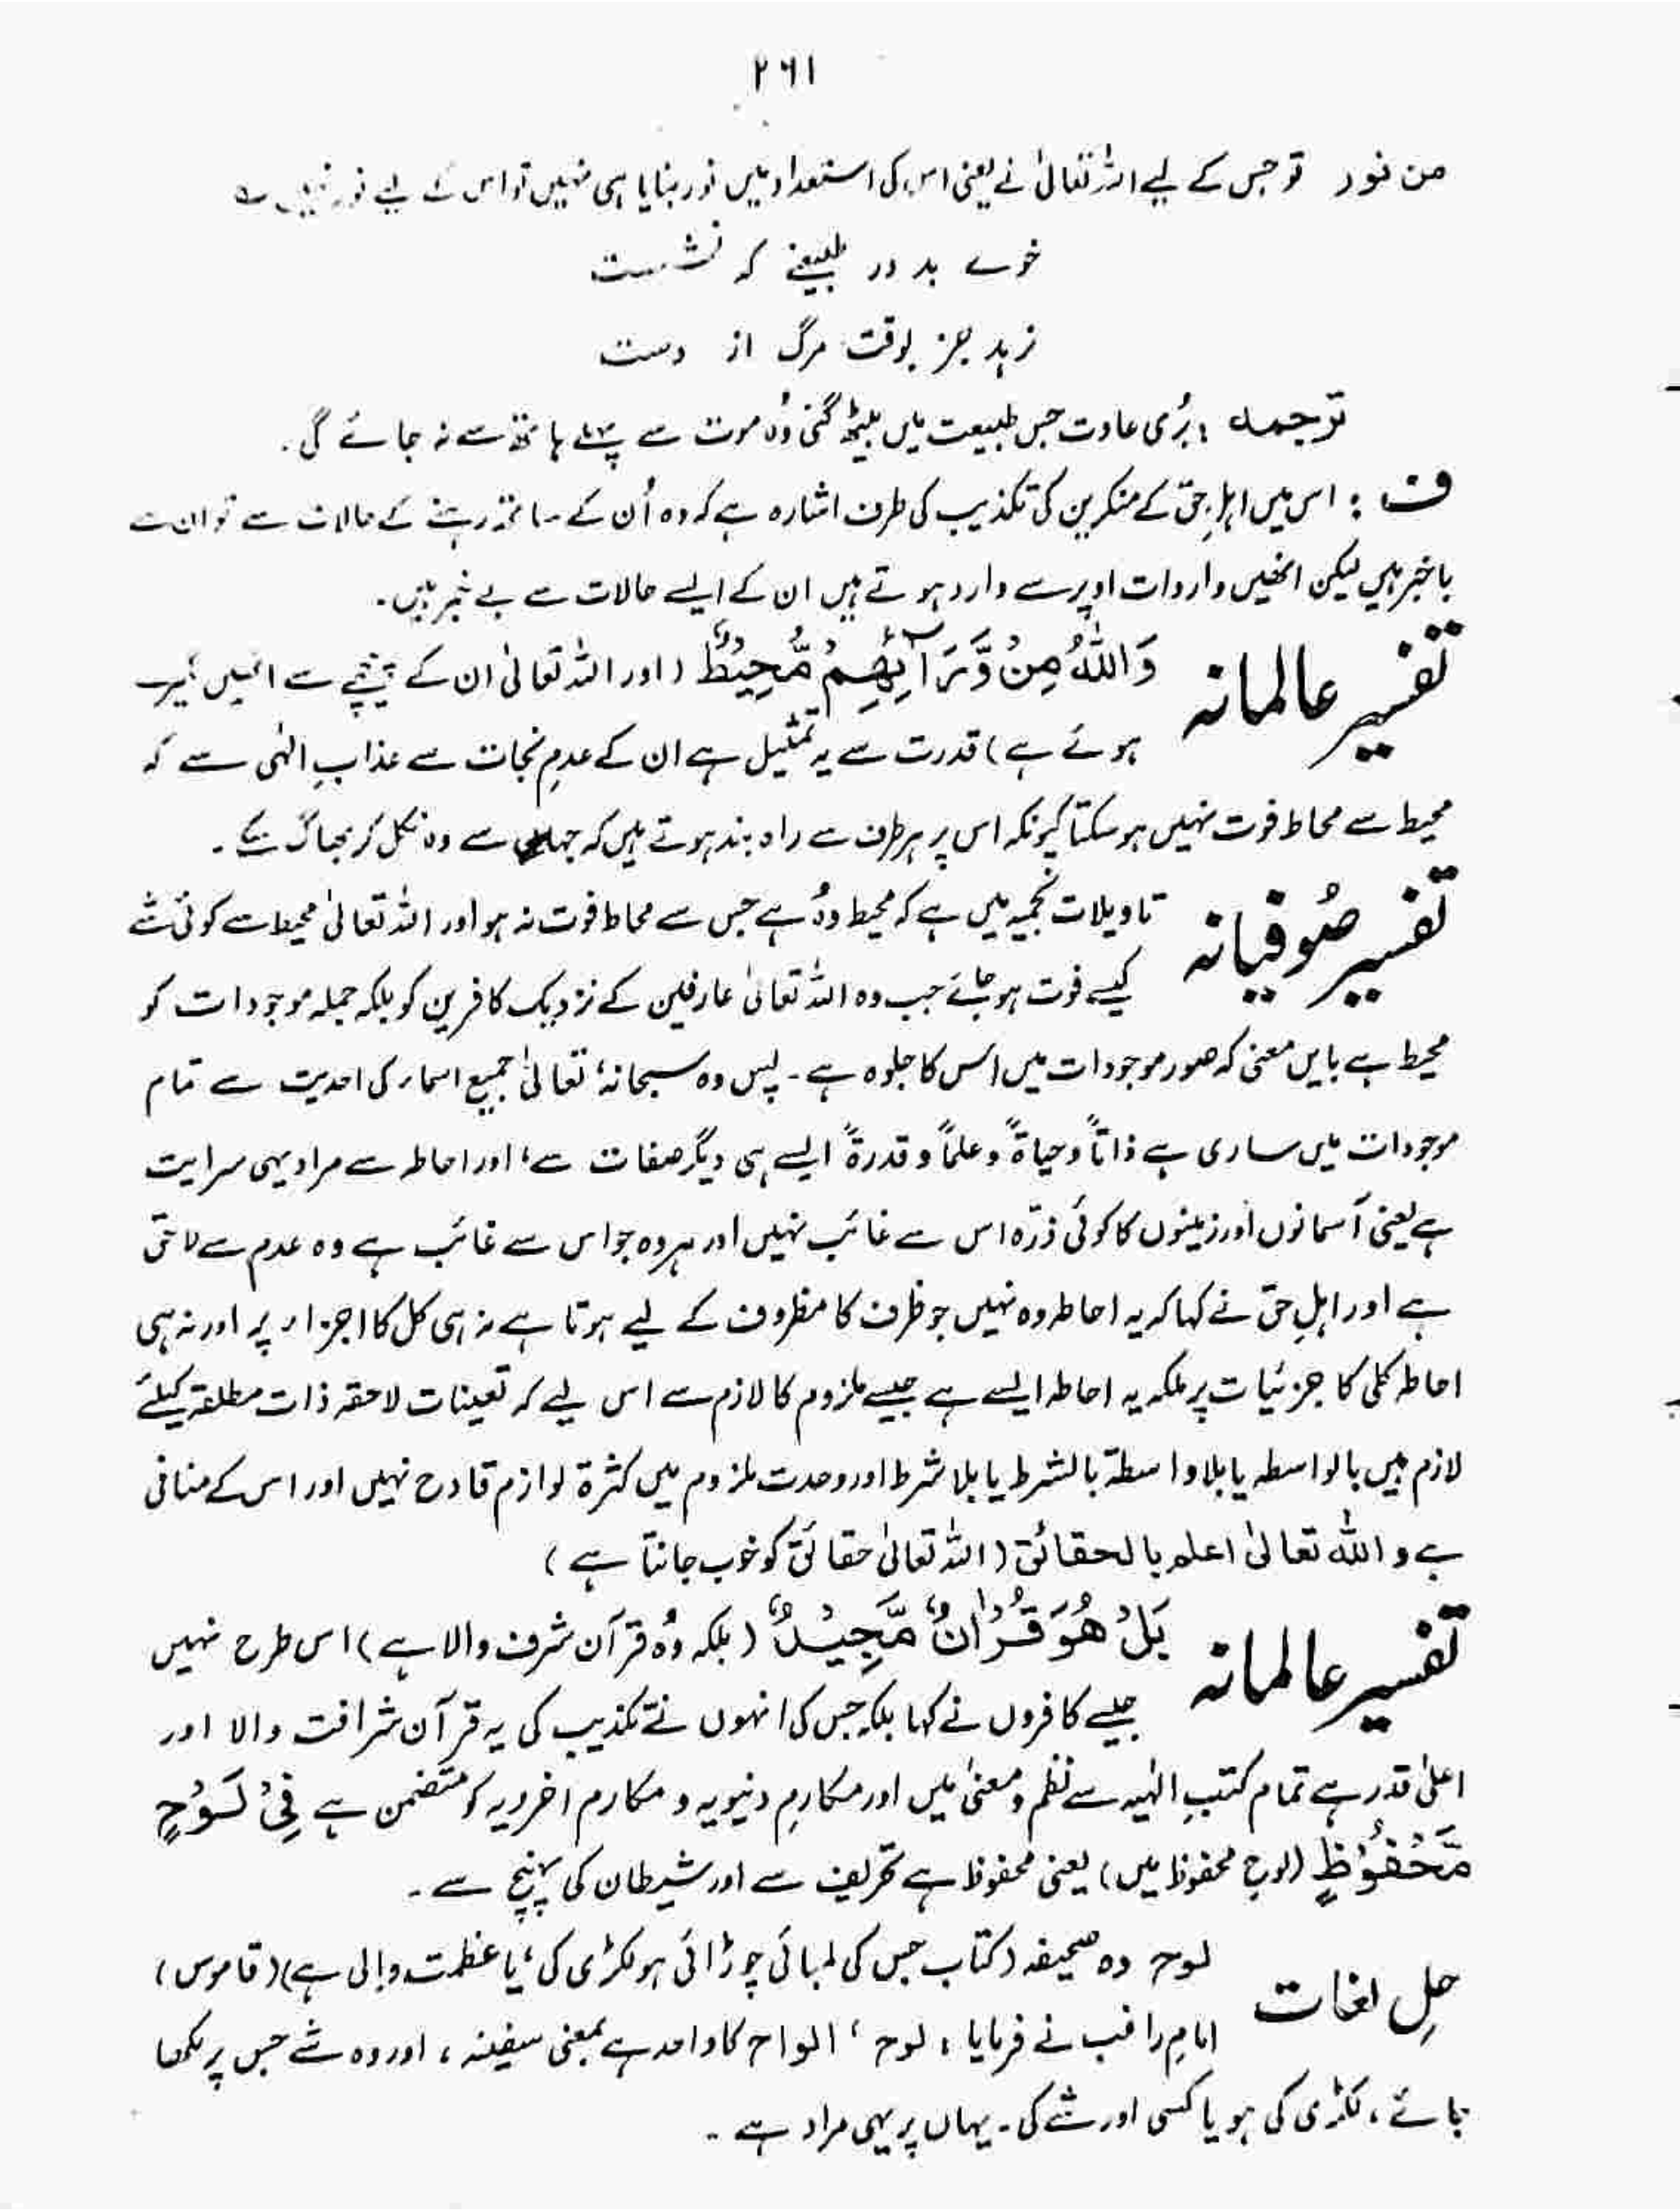 ۲۶۱
من نور تو جس کے لیے اللہ تعالیٰ نے یعنی اس کی استعداد میں نور بنایا ہی نہیں تو اس کے لیے نور نہیں ے
خوے بد در طبیعتے کہ نشست
نرہد جز بوقت مرگ از دست
ترجمہ : بُری عادت جس طبیعت میں بیٹھ گئی وُہ موت سے پہلے ہاتھ سے نہ جائے گی۔
ف : اس میں اہلِ حق کے منکرین کی تکذیب کی طرف اشارہ ہے کہ وہ اُن کے ساتھ رہنے کے حالات سے تو ان سے
باخبر ہیں لیکن انھیں واردات اوپر سے وارد ہوتے ہیں ان کے ایسے حالات سے بے خبر ہیں۔
تفسیر عالمانہ وَاللّٰهُ مِنْ وَّرَآئِهِمْ مُّحِيْطٌ (اور اللہ تعالیٰ ان کے پیچھے سے انہیں گھیرے
ہوئے ہے) قدرت سے یہ تمثیل ہے ان کے عدمِ نجات سے عذابِ الٰہی سے کہ
محیط سے محاط فوت نہیں ہو سکتا کیونکہ اس پر ہر طرف سے راہ بند ہوتے ہیں کہ جہاں سے وہ نکل کر بھاگ سکے۔
تفسیر صُوفیانہ تاویلات نجمیہ میں ہے کہ محیط وُہ ہے جس سے محاط فوت نہ ہو اور اللہ تعالیٰ محیط سے کوئی شے
کیسے فوت ہو جائے جب وہ اللہ تعالیٰ عارفین کے نزدیک کافرین کو بلکہ جملہ موجودات کو
محیط ہے بایں معنی کہ صور موجودات میں اس کا جلوہ ہے۔ پس وہ سبحانہٗ تعالیٰ جمیع اسماء کی احدیت سے تمام
موجودات میں ساری ہے ذاتاً و حیاۃً و علماً و قدرۃً ایسے ہی دیگر صفات سے، اور احاطہ سے مراد یہی سرایت
ہے یعنی آسمانوں اور زمینوں کا کوئی ذرّہ اس سے غائب نہیں اور ہر وہ جو اس سے غائب ہے وہ عدم سے لاحق
ہے اور اہلِ حق نے کہا کہ یہ احاطہ وہ نہیں جو ظرف کا مظروف کے لیے ہوتا ہے نہ ہی کل کا اجزاء پر اور نہ ہی
احاطہ کلی کا جزئیات پر بلکہ یہ احاطہ ایسے ہے جیسے ملزوم کا لازم سے اس لیے کہ تعینات لاحقہ ذات مطلقہ کیلئے
لازم ہیں بالواسطہ یا بلا واسطۃ بالشرط یا بلا شرط اور وحدت ملزوم میں کثرۃ لوازم قادح نہیں اور اس کے منافی
ہے و اللہ تعالیٰ اعلم بالحقائق (اللہ تعالیٰ حقائق کو خوب جانتا ہے)
تفسیر عالمانہ بَلْ هُوَ قُرْاٰنٌ مَّجِيْدٌ (بلکہ وُہ قرآن شرف والا ہے) اس طرح نہیں
جیسے کافروں نے کہا بلکہ جس کی انہوں نے تکذیب کی یہ قرآن شرافت والا اور
اعلیٰ قدر ہے تمام کتبِ الٰہیہ سے نظم و معنیٰ میں اور مکارمِ دنیویہ و مکارم اخرویہ کو متضمن ہے فِيْ لَوْحٍ
مَّحْفُوْظٍ (لوحِ محفوظ میں) یعنی محفوظ ہے تحریف سے اور شیطان کی پہنچ سے۔
حلِ لغات لوح وہ صحیفہ (کتاب جس کی لمبائی چوڑائی ہو لکڑی کی، یا عظمت والی ہے) (قاموس)
امامِ راغب نے فرمایا : لوح، الواح کا واحد ہے بمعنی سفینہ، اور وہ شے جس پر لکھا
جائے، لکڑی کی ہو یا کسی اور شے کی۔ یہاں پر یہی مراد ہے۔